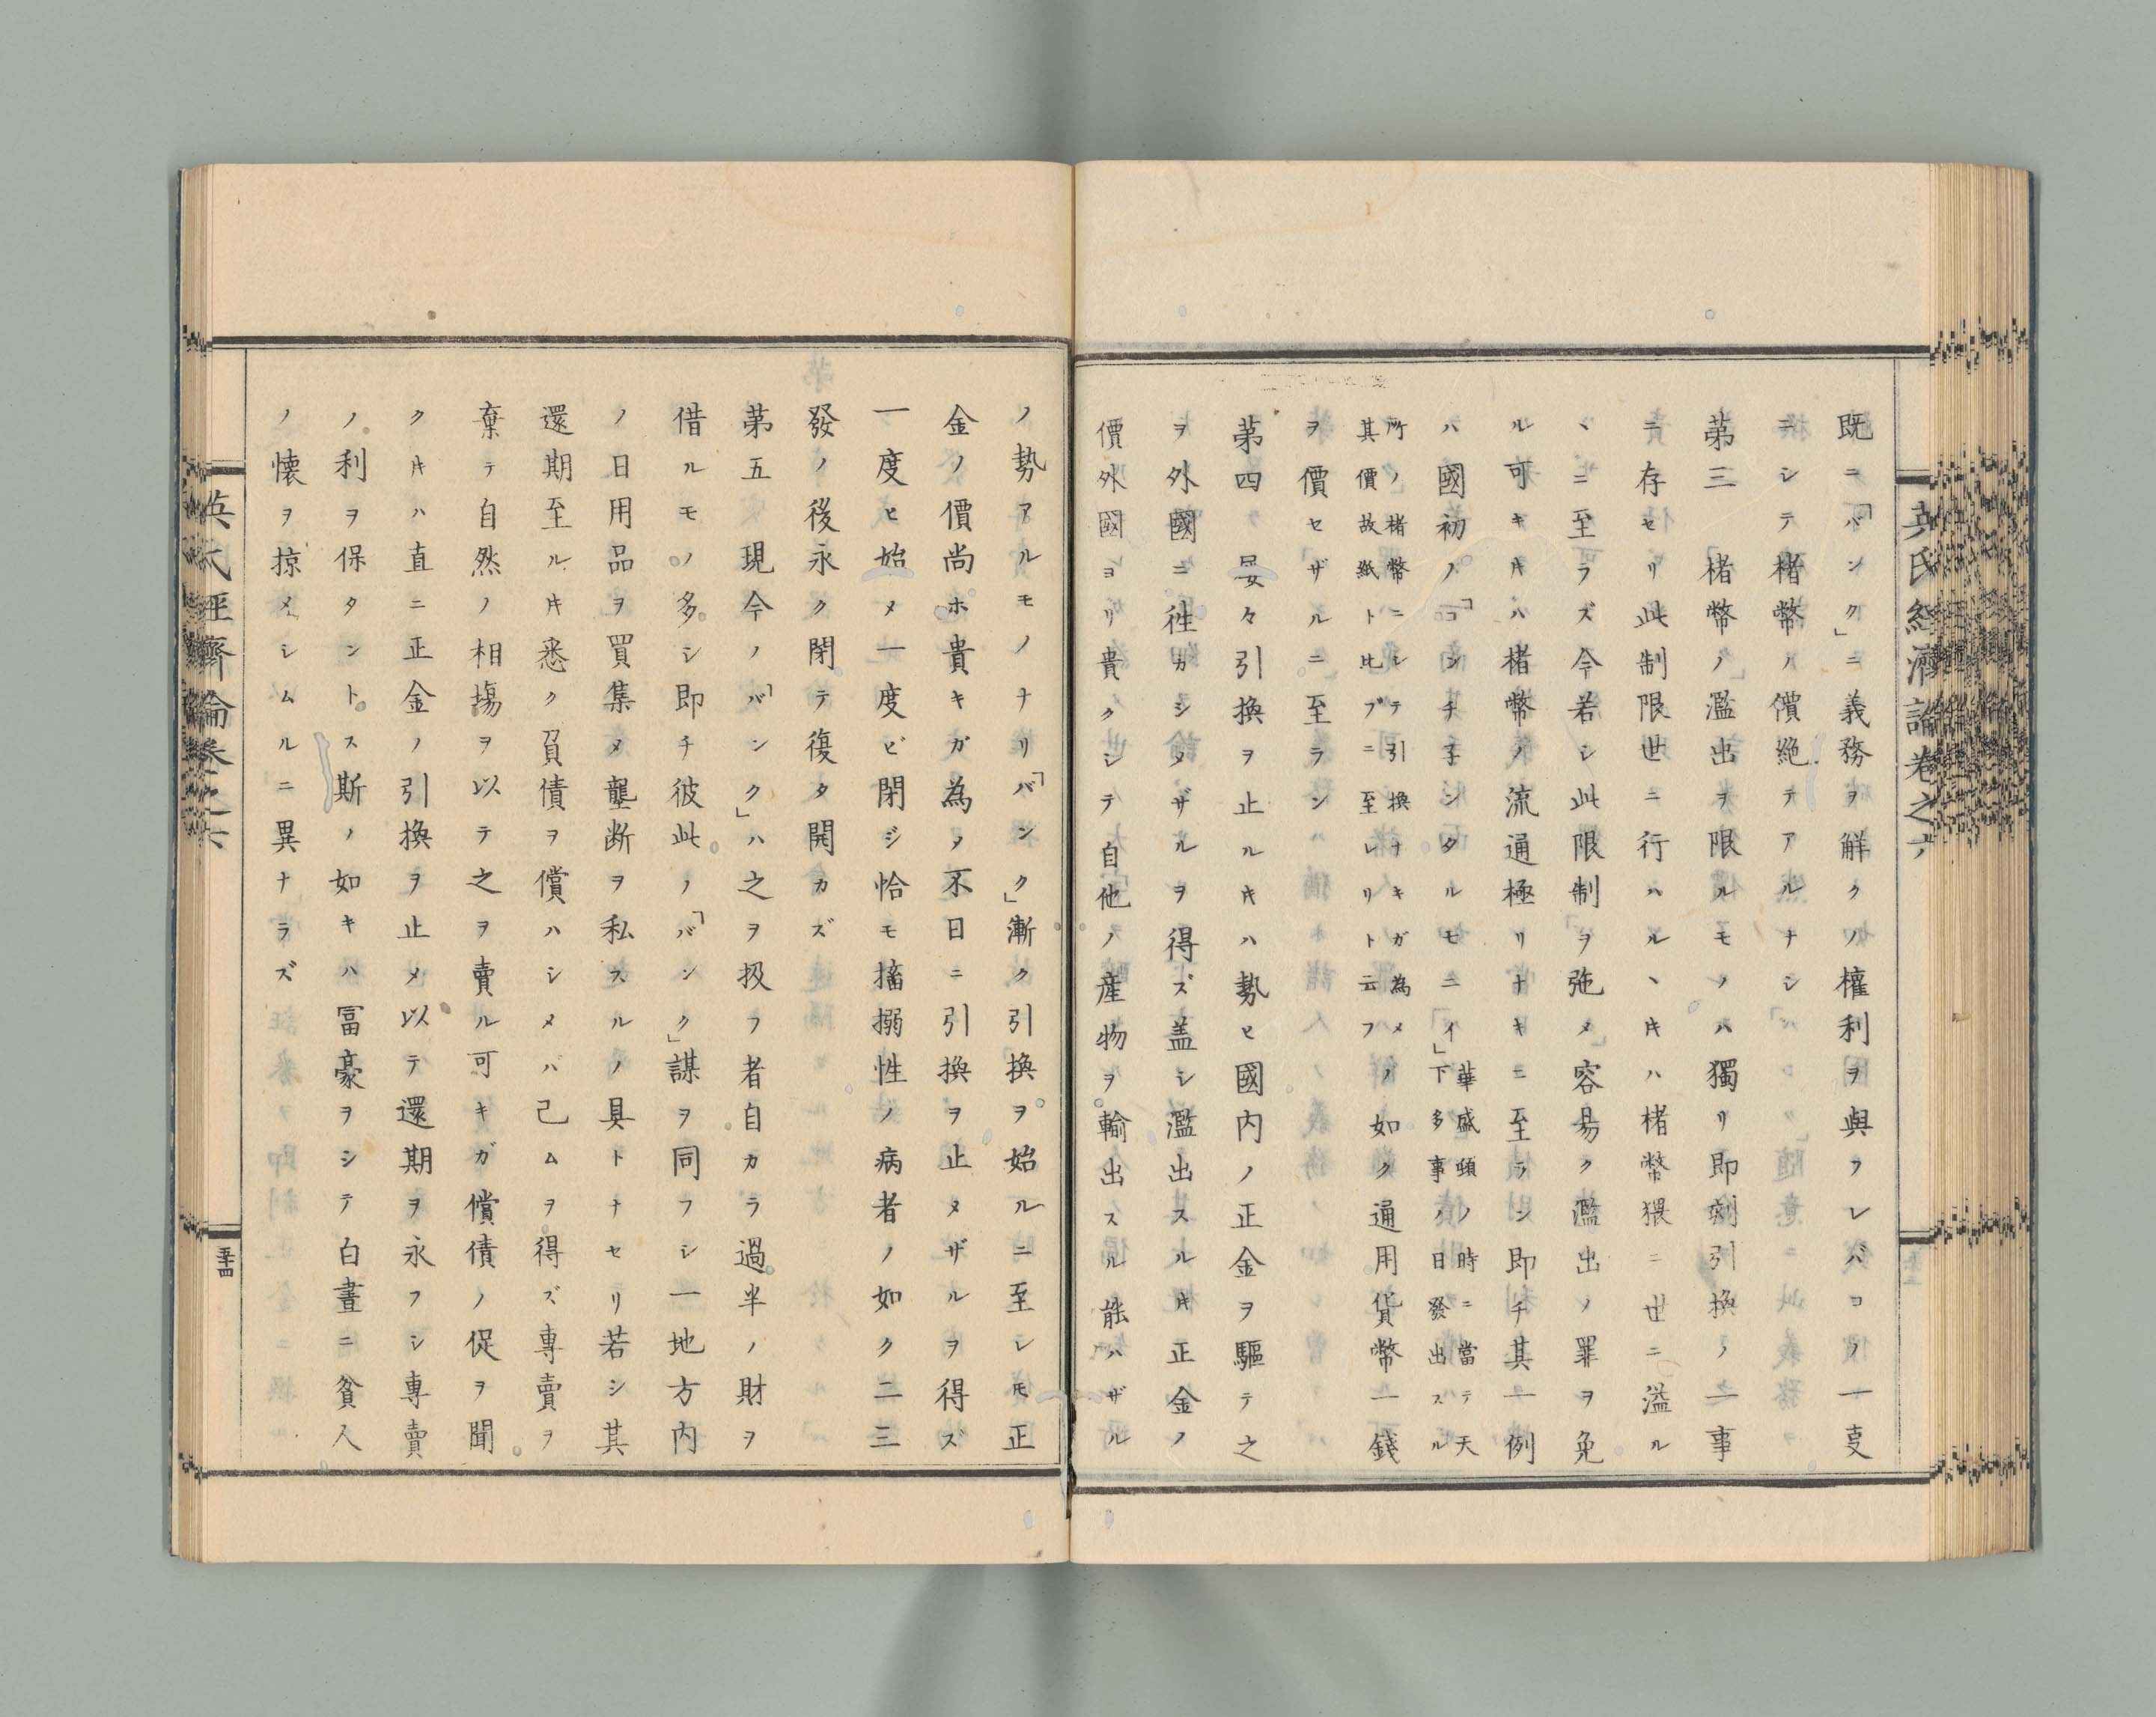 英氏經濟論卷之六
既ニ「バンク」ニ義務ヲ解クノ權利ヲ與フレバコノ一叓
ニシテ楮幣ノ價絶テアルナシ
第三 楮幣ノ濫出ヲ限ルモノハ獨リ即刻引換ノ一事
ニ存セリ此制限世ニ行ハルヽ𪜈ハ楮幣猥ニ世ニ溢ル
ヽニ至ラズ今若シ此限制ヲ弛メ容易ク濫出ノ罪ヲ免
ル可キ𪜈ハ楮幣ノ流通極リナキニ至ラン即チ其一例
ハ國初ノ「コンチ子ンタルモニイ」華盛頓ノ時ニ當テ天下多事ノ日發出スル
所ノ楮幣ニシテ引換ナキガ為メ其價故紙ト比ブニ至レリト云フノ如ク通用貨幣一錢
ヲ價セザルニ至ラン
第四 晏々引換ヲ止ル𪜈ハ勢ヒ國内ノ正金ヲ驅テ之
ヲ外國ニ徃カシタザルヲ得ズ盖シ濫出スル𪜈正金ノ
價外國ヨリ貴クシテ自他ノ産物ヲ輸出スル能ハザル
ノ勢アルモノナリ「バンク」漸ク引換ヲ始ルニ至レ𪜈正
金ノ價尚ホ貴キガ為メ不日ニ引換ヲ止タザルヲ得ズ
一度ヒ始メ一度ビ閉ジ恰モ搐搦性ノ病者ノ如ク二三
發ノ後永ク閉テ復タ開カズ
第五 現今ノ「バンク」ハ之ヲ扱フ者自カラ過半ノ財ヲ
借ルモノ多シ即チ彼此ノ「バンク」謀ヲ同フシ一地方内
ノ日用品ヲ買集メ壟断ヲ私スルノ具トナセリ若シ其
還期至ル𪜈悉ク負債ヲ償ハシメバ己ムヲ得ズ專賣ヲ
棄テ自然ノ相塲ヲ以テ之ヲ賣ル可キガ償債ノ促ヲ聞
ク𪜈ハ直ニ正金ノ引換ヲ止メ以テ還期ヲ永フシ専賣
ノ利ヲ保タントス斯ノ如キハ冨豪ヲシテ白晝ニ貧人
ノ懐ヲ掠メシムルニ異ナラズ
英氏經濟論卷之六
五十四